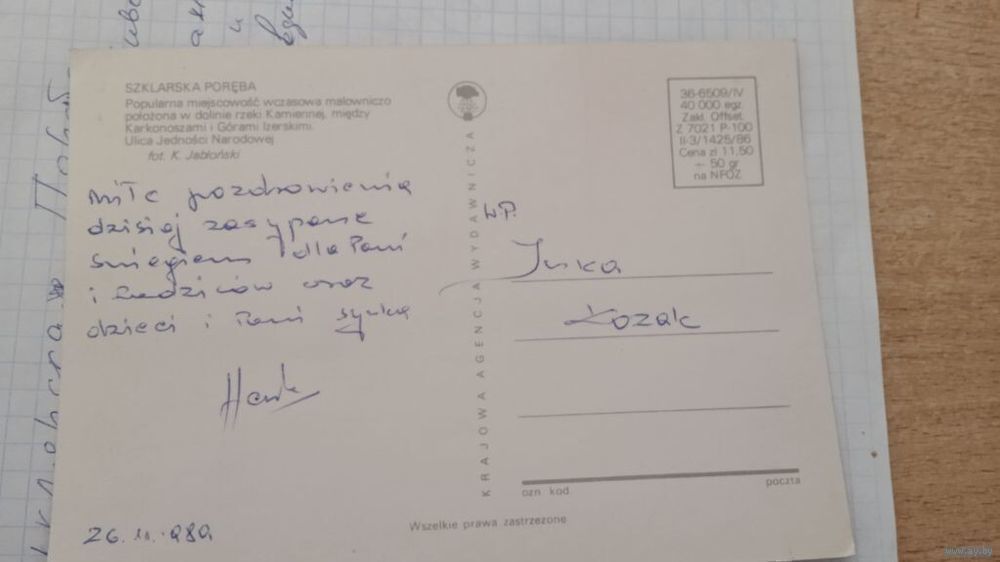 SZKLARSKA PORĘBA
Popularna miejscowość wczasowa malowniczo
położona w dolinie rzeki Kamiennej, między
Karkonoszami i Górami Izerskimi.
Ulica Jedności Narodowej
fot. K. Jabłoński
miłe pozdrowienia
dzisiaj zasypane
śniegiem dla Pani
i Rodziców oraz
dzieci i Pani synka
26.11.
KRAJOWA AGENCJA WYDAWNICZA
36-6509/IV
40 000 egz.
Zakł. Offset.
Z 7021 P-100
II-3/1425/86
Cena zł 11,50
+ 50 gr
na NFOZ
W.P.
Inka
Kozak
ozn. kod.
poczta
Wszelkie prawa zastrzeżone
www.ay.by